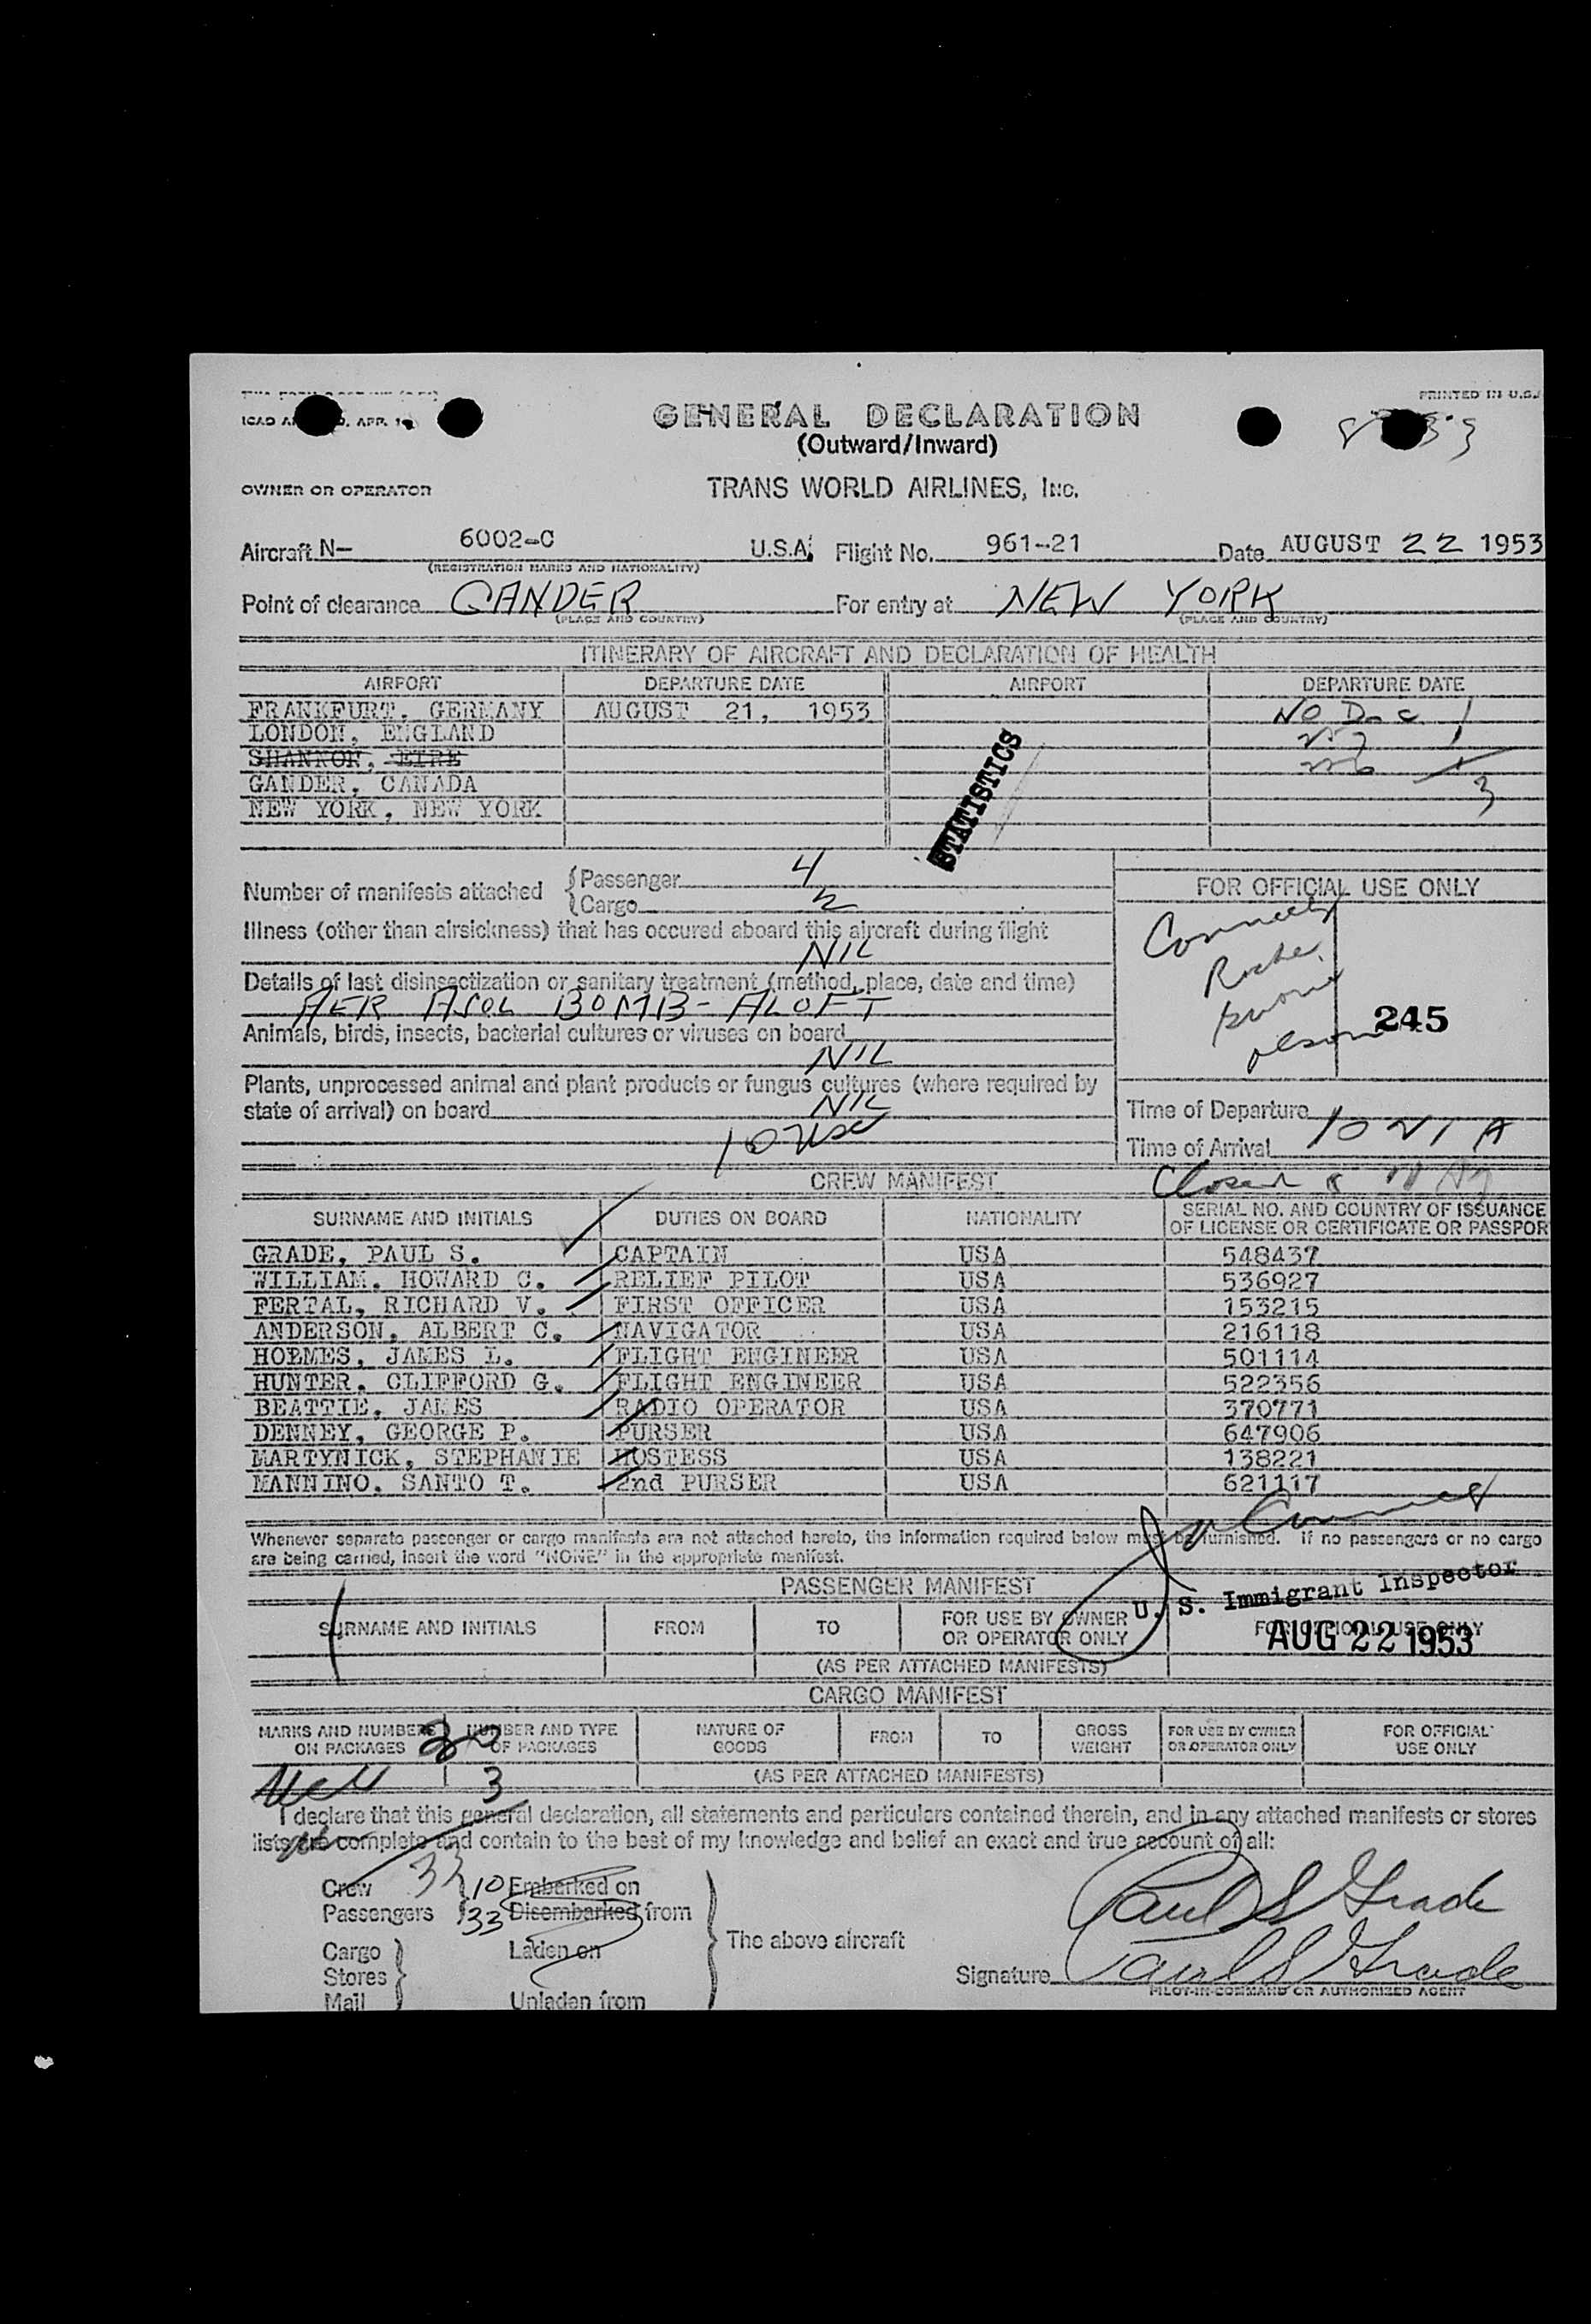 PRINTED IN U.S.
GENERAL DECLARATION
(Outward/Inward)
OWNER OR OPERATOR TRANS WORLD AIRLINES, Inc.
Aircraft N— 6002-C U.S.A. Flight No. 961-21 Date AUGUST 22 1953
(REGISTRATION MARKS AND NATIONALITY)
Point of clearance GANDER For entry at NEW YORK
(PLACE AND COUNTRY) (PLACE AND COUNTRY)
ITINERARY OF AIRCRAFT AND DECLARATION OF HEALTH
AIRPORT DEPARTURE DATE AIRPORT DEPARTURE DATE
FRANKFURT, GERMANY AUGUST 21, 1953 NO Doc 1
LONDON, ENGLAND
SHANNON, EIRE
GANDER, CANADA 3
NEW YORK, NEW YORK
STATISTICS
Number of manifests attached { Passenger 4
{ Cargo 2
FOR OFFICIAL USE ONLY
Illness (other than airsickness) that has occured aboard this aircraft during flight
NIL
Details of last disinsectization or sanitary treatment (method, place, date and time)
AER ASOL BOMB - ALOFT
245
Animals, birds, insects, bacterial cultures or viruses on board
NIL
Plants, unprocessed animal and plant products or fungus cultures (where required by
state of arrival) on board NIL
10 USC
Time of Departure
Time of Arrival 10 21 A
Closed 8
CREW MANIFEST
SURNAME AND INITIALS DUTIES ON BOARD NATIONALITY SERIAL NO. AND COUNTRY OF ISSUANCE
OF LICENSE OR CERTIFICATE OR PASSPOR
GRADE, PAUL S. CAPTAIN USA 548437
WILLIAM, HOWARD C. RELIEF PILOT USA 536927
FERTAL, RICHARD V. FIRST OFFICER USA 153215
ANDERSON, ALBERT C. NAVIGATOR USA 216118
HOLMES, JAMES L. FLIGHT ENGINEER USA 501114
HUNTER, CLIFFORD G. FLIGHT ENGINEER USA 522356
BEATTIE, JAMES RADIO OPERATOR USA 370771
DENNEY, GEORGE P. PURSER USA 647906
MARTYNICK, STEPHANIE HOSTESS USA 138221
MANNINO, SANTO T. 2nd PURSER USA 621117
Whenever separate passenger or cargo manifests are not attached hereto, the information required below must be furnished. If no passengers or no cargo
are being carried, insert the word "NONE" in the appropriate manifest.
PASSENGER MANIFEST
U. S. Immigrant Inspector
SURNAME AND INITIALS FROM TO FOR USE BY OWNER OR OPERATOR ONLY FOR OFFICIAL USE ONLY
AUG 22 1953
(AS PER ATTACHED MANIFESTS)
CARGO MANIFEST
MARKS AND NUMBERS ON PACKAGES NUMBER AND TYPE OF PACKAGES NATURE OF GOODS FROM TO GROSS WEIGHT FOR USE BY OWNER OR OPERATOR ONLY FOR OFFICIAL USE ONLY
3 (AS PER ATTACHED MANIFESTS)
I declare that this general declaration, all statements and particulars contained therein, and in any attached manifests or stores
lists are complete and contain to the best of my knowledge and belief an exact and true account of all:
33
Crew 10 Embarked on
Passengers 33 Disembarked from
Paul S Grade
Cargo Laden on The above aircraft
Stores
Signature Paul S Grade
PILOT-IN-COMMAND OR AUTHORIZED AGENT
Mail Unladen from